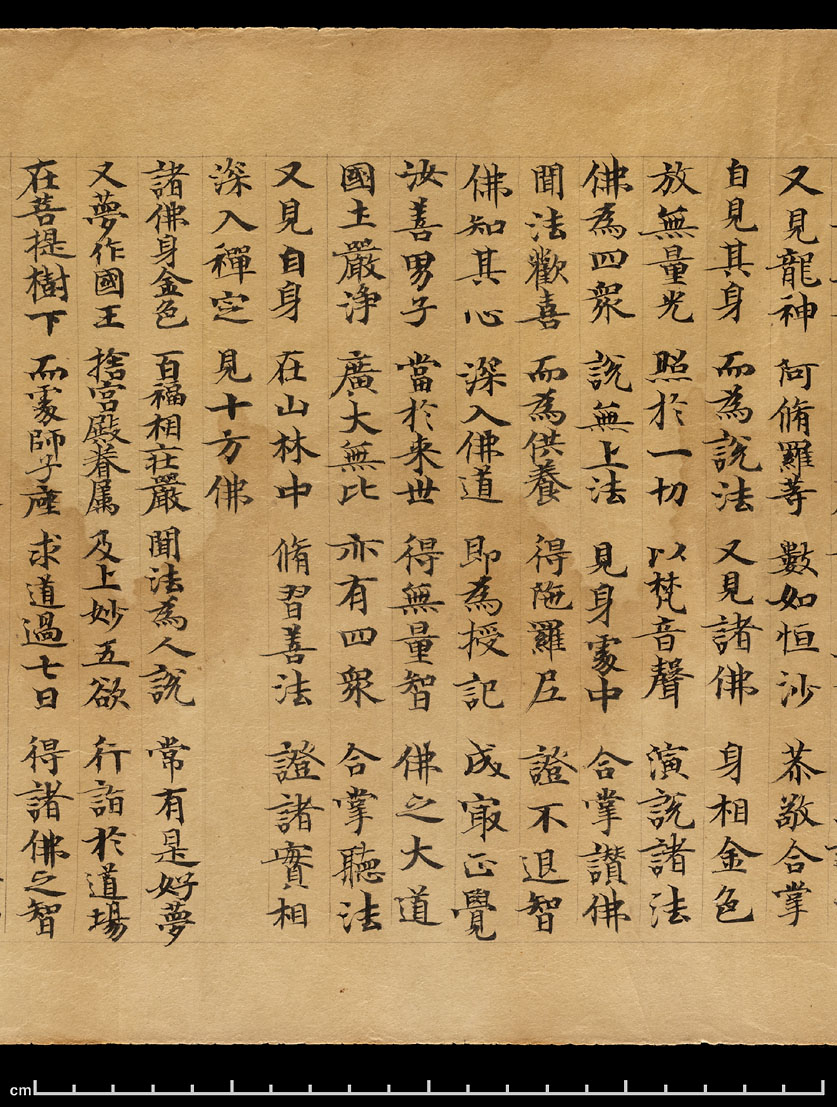 又見龍神 阿脩羅等 數如恒沙 恭敬合掌
自見其身 而為說法 又見諸佛 身相金色
放無量光 照於一切 以梵音聲 演說諸法
佛為四衆 說無上法 見身處中 合掌讃佛
聞法歡喜 而為供養 得陁羅尼 證不退智
佛知其心 深入佛道 即為授記 成冣正覺
汝善男子 當於来世 得無量智 佛之大道
國土嚴淨 廣大無比 亦有四衆 合掌聽法
又見自身 在山林中 脩習善法 證諸實相
深入禪定 見十方佛
諸佛身金色 百福相莊嚴 聞法為人說 常有是好夢
又夢作國王 捨宮殿眷属 及上妙五欲 行詣於道場
在菩提樹下 而處師子座 求道過七日 得諸佛之智